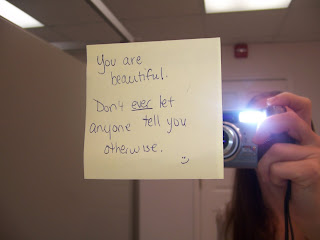 You are
beautiful.
Don't ever let
anyone tell you
otherwise.